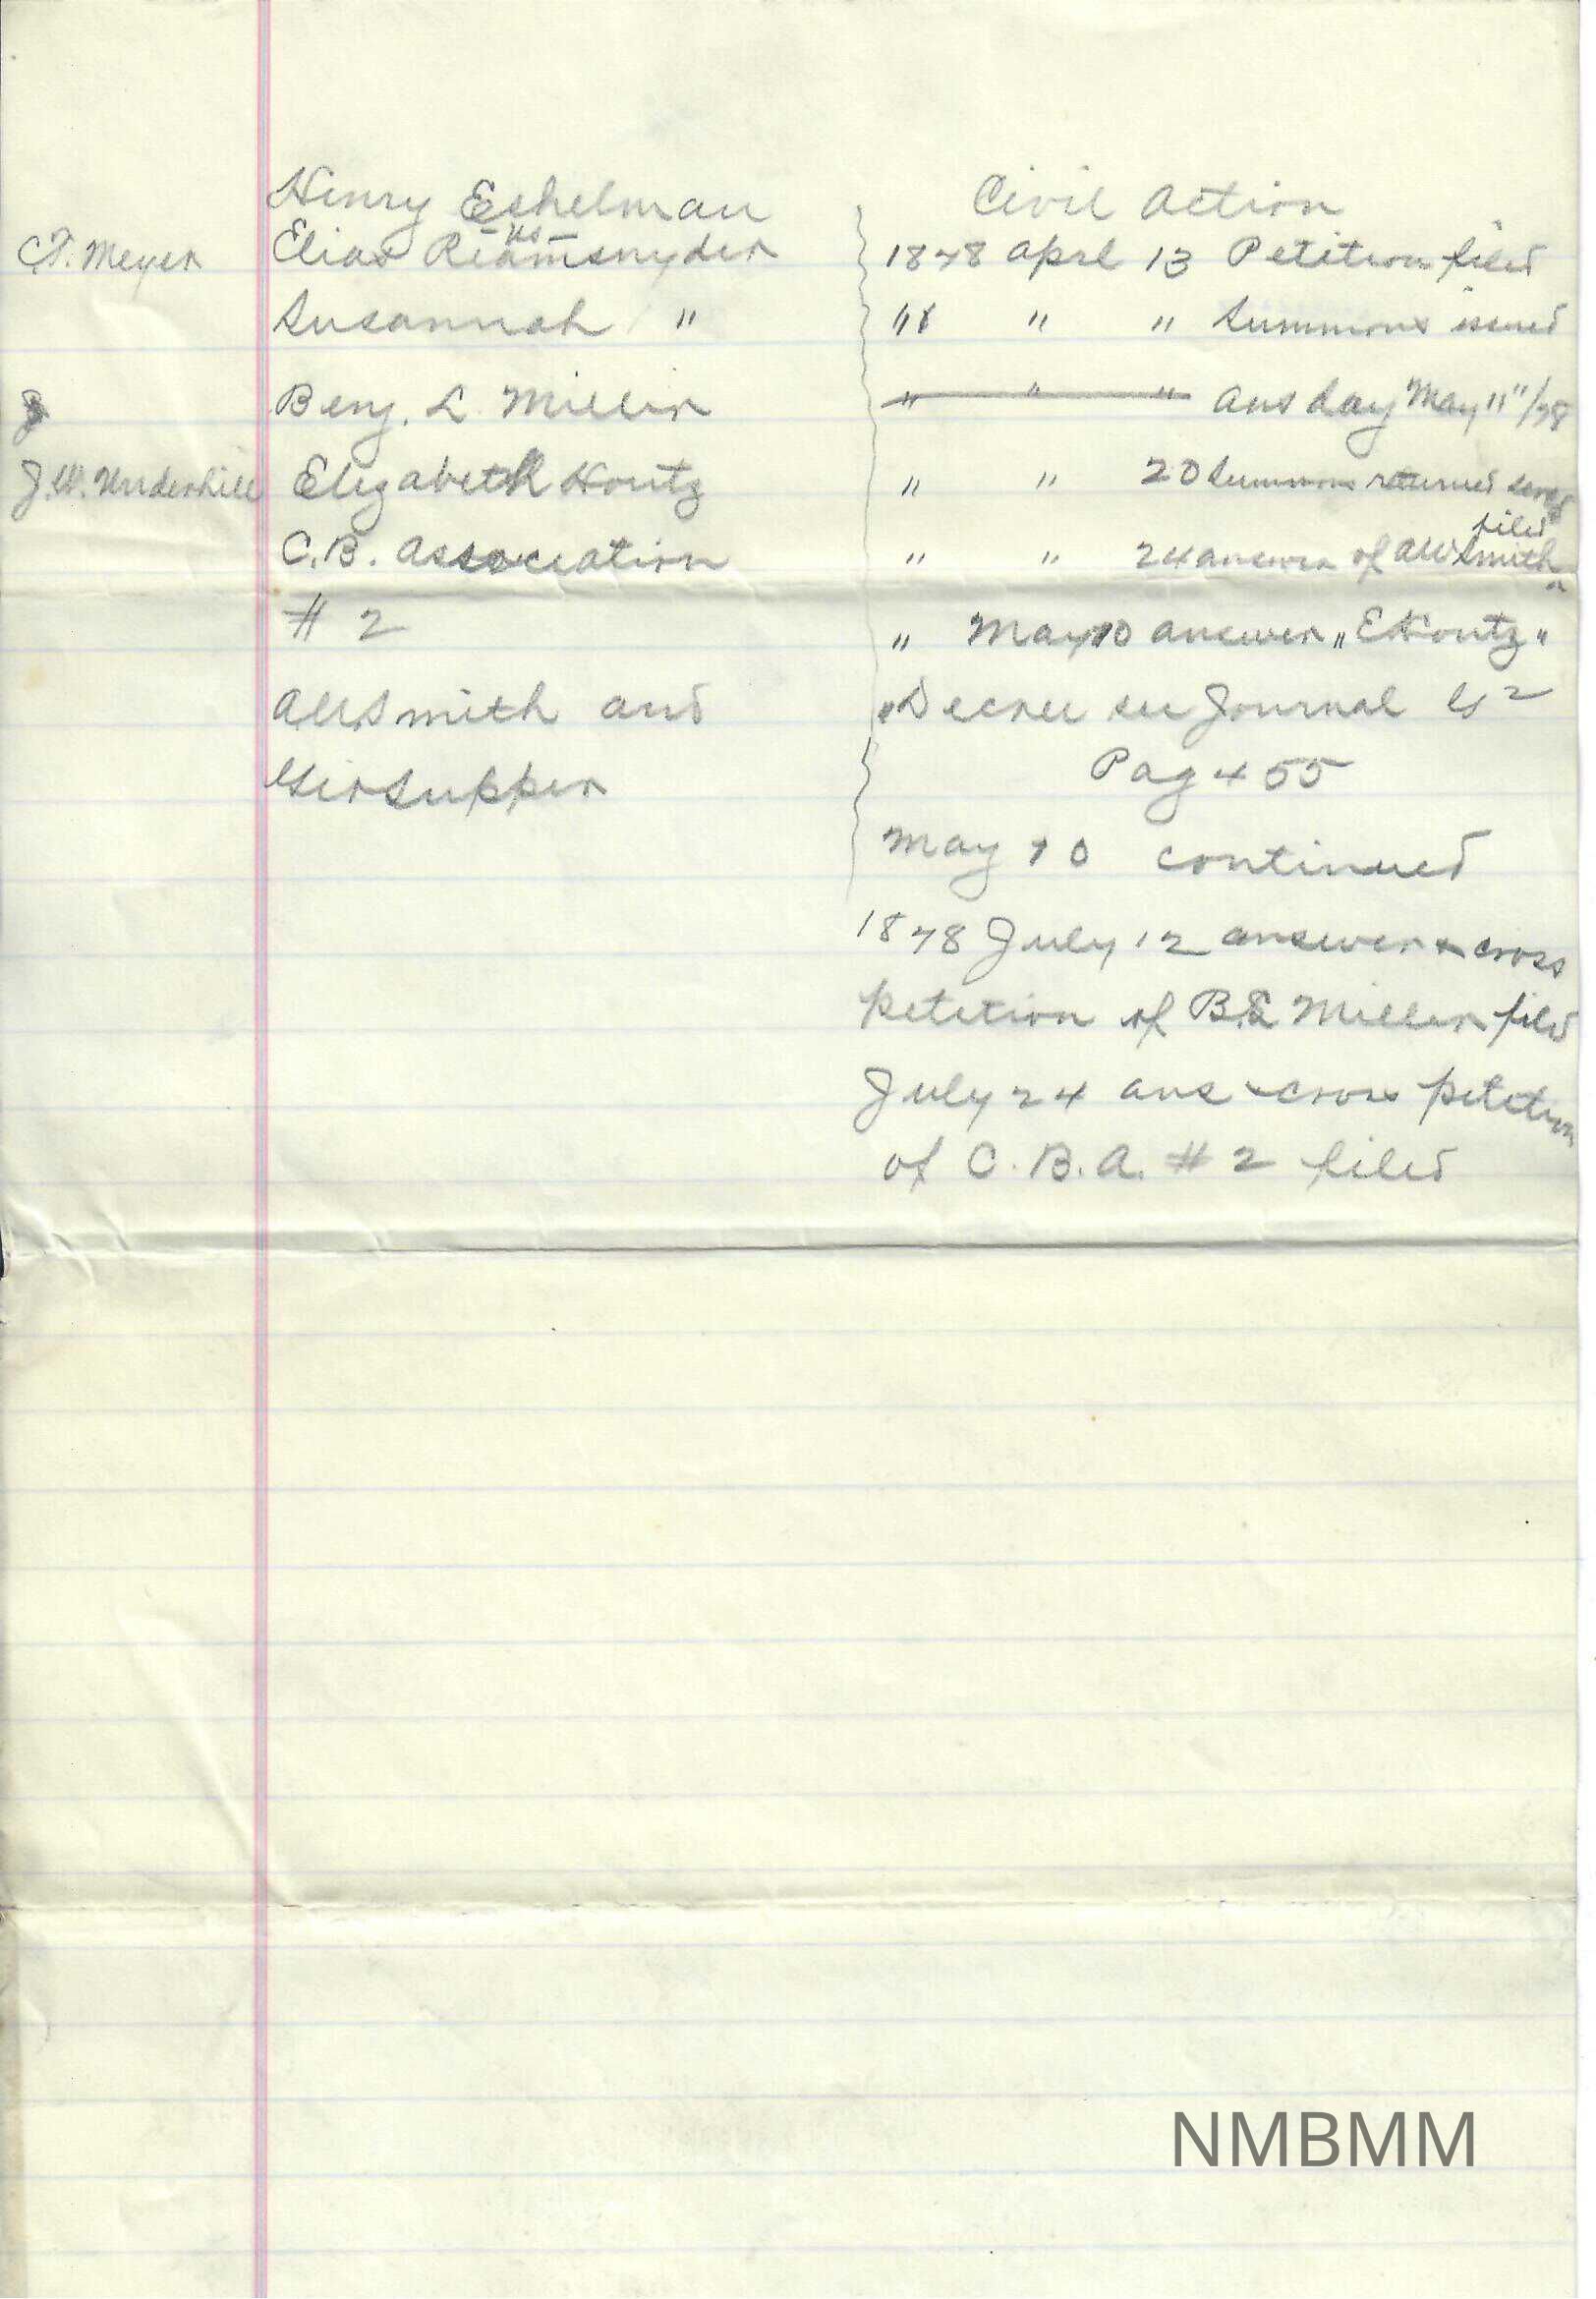 Henry Eshelman
vs
Civil Action
C.F. Meyer Elias Reamsnyder 1878 Aprl 13 Petition filed
Susannah " " " " Summons issued
Benj. L. Miller " " " ans day May 11"/78
J.W. Underhill Elizabeth Hontz " " 20 Summons returned
filed
C.B. Association " " 24 answer of AW Smith
# 2 " May 10 answer " E Hontz "
AW Smith and "Decree see Journal
Girsupper Pag 455
May 10 continued
1878 July 12 answer & cross
petition of B.L Miller filed
July 24 ans & cross petition
of C. B. A. # 2 filed
NMBMM